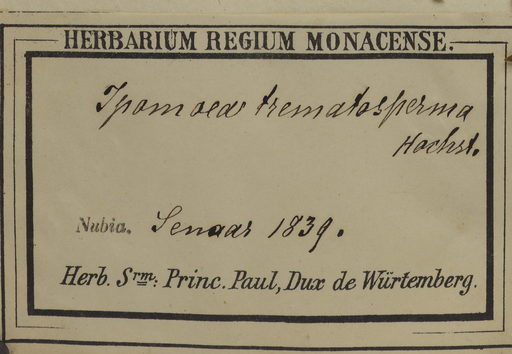 HERBARIUM REGIUM MONACENSE.
Ipomoea trematosperma
Hochst.
Nubia. Senaar 1839.
Herb. Srm: Princ. Paul, Dux de Würtemberg.